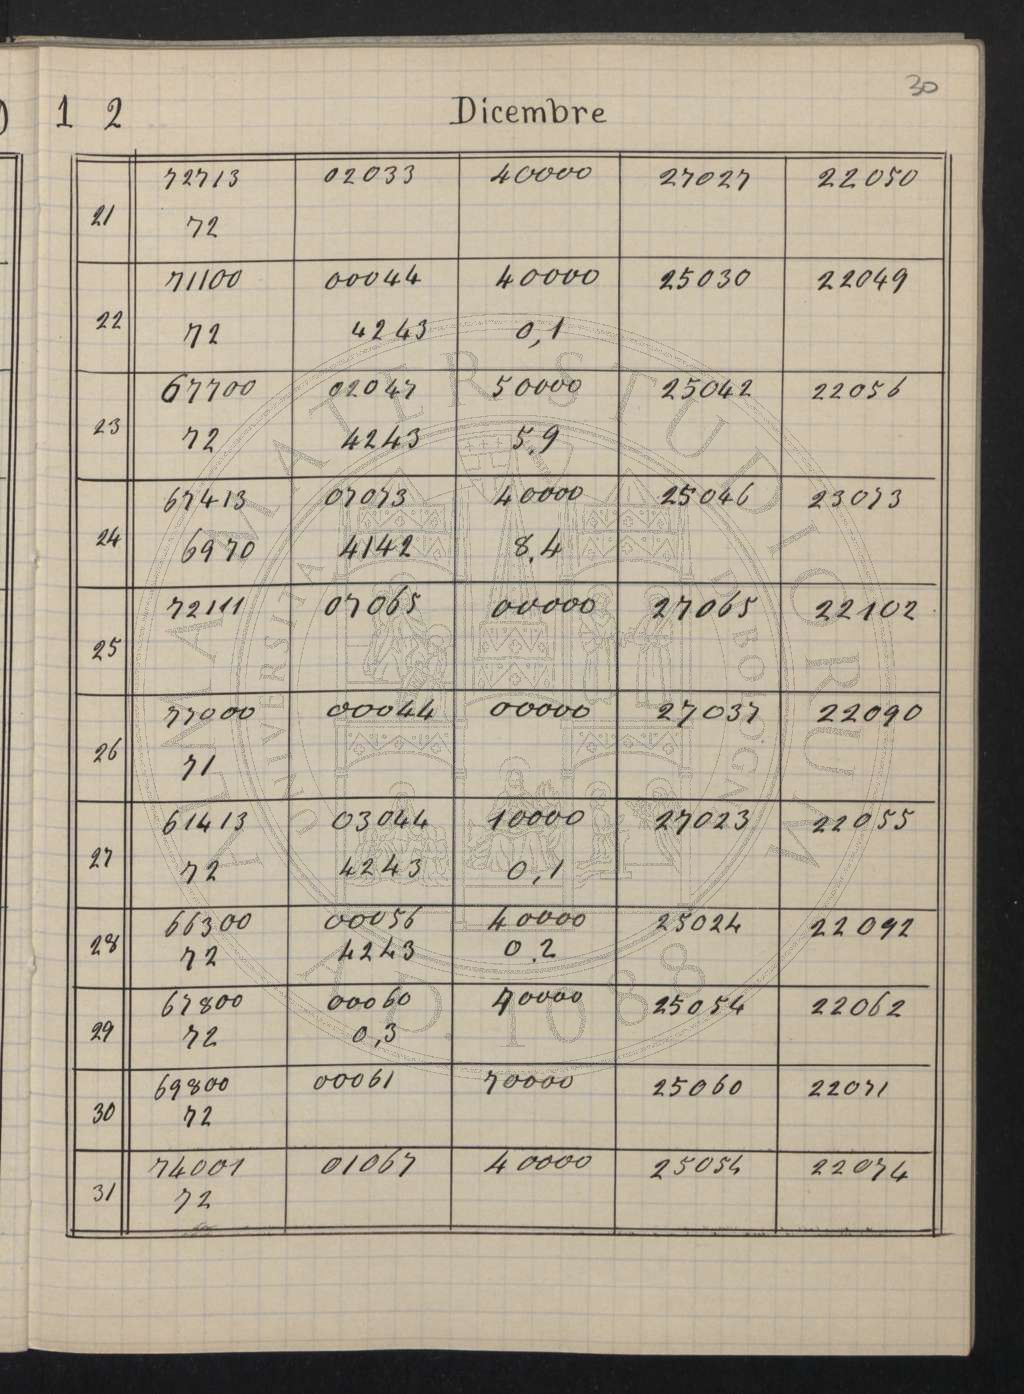 30
1 2 Dicembre
72713 02033 40000 27027 22050
21
72
71100 00044 40000 25030 22049
22
72 4243 0,1
67700 02047 50000 25042 22056
23
72 4243 5,9
67413 07073 40000 25046 23073
24
6970 4142 8,4
72111 07065 00000 27065 22102
25
77000 00044 00000 27037 22090
26
71
61413 03044 10000 27023 22055
27
72 4243 0,1
66300 00056 40000 25024 22092
28
72 4243 0,2
67800 00060 70000 25054 22062
29
72 0,3
69800 00061 70000 25060 22071
30
72
74001 01067 40000 25054 22074
31
72
ALMA MATER STUDIORUM
UNIVERSITÀ DI BOLOGNA
A.D. 1088